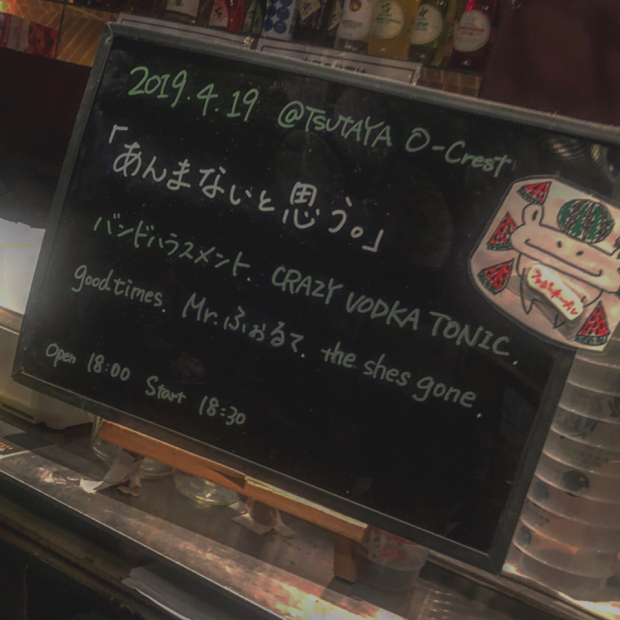 2019.4.19 @TSUTAYA O-Crest
「あんまないと思う。」
バンドハラスメント. CRAZY VODKA TONIC.
goodtimes. Mr.ふぉるて. the shes gone.
Open 18:00 Start 18:30